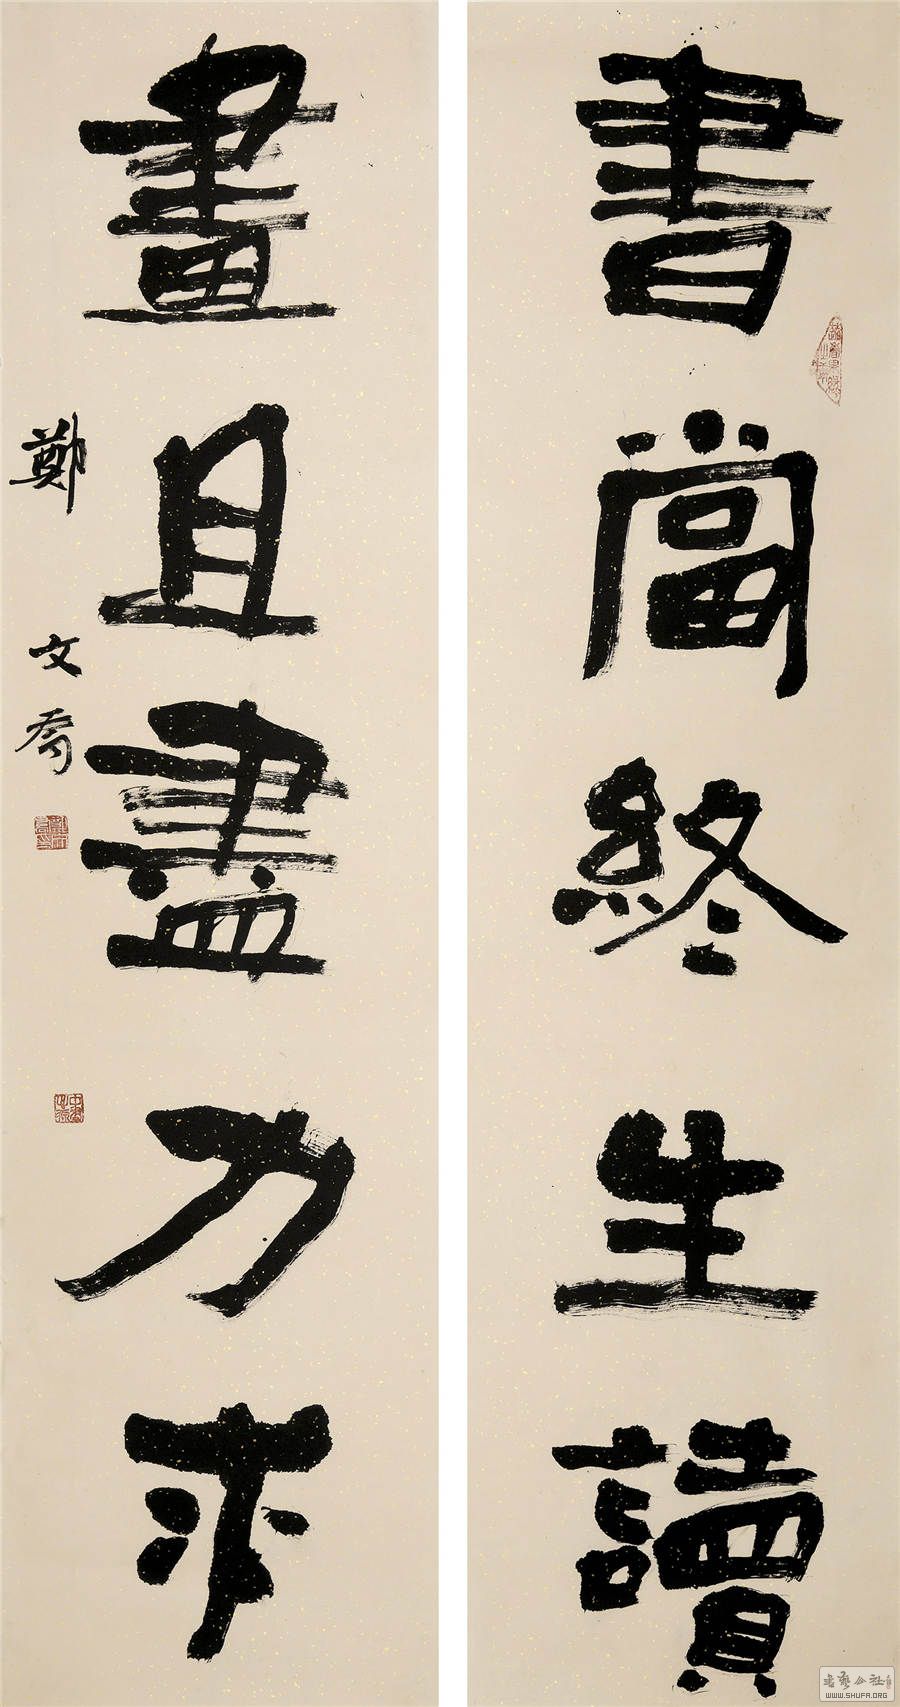 書當終生讀
畫且盡力求
鄭文喬
書藝公社
WWW.SHUFA.ORG